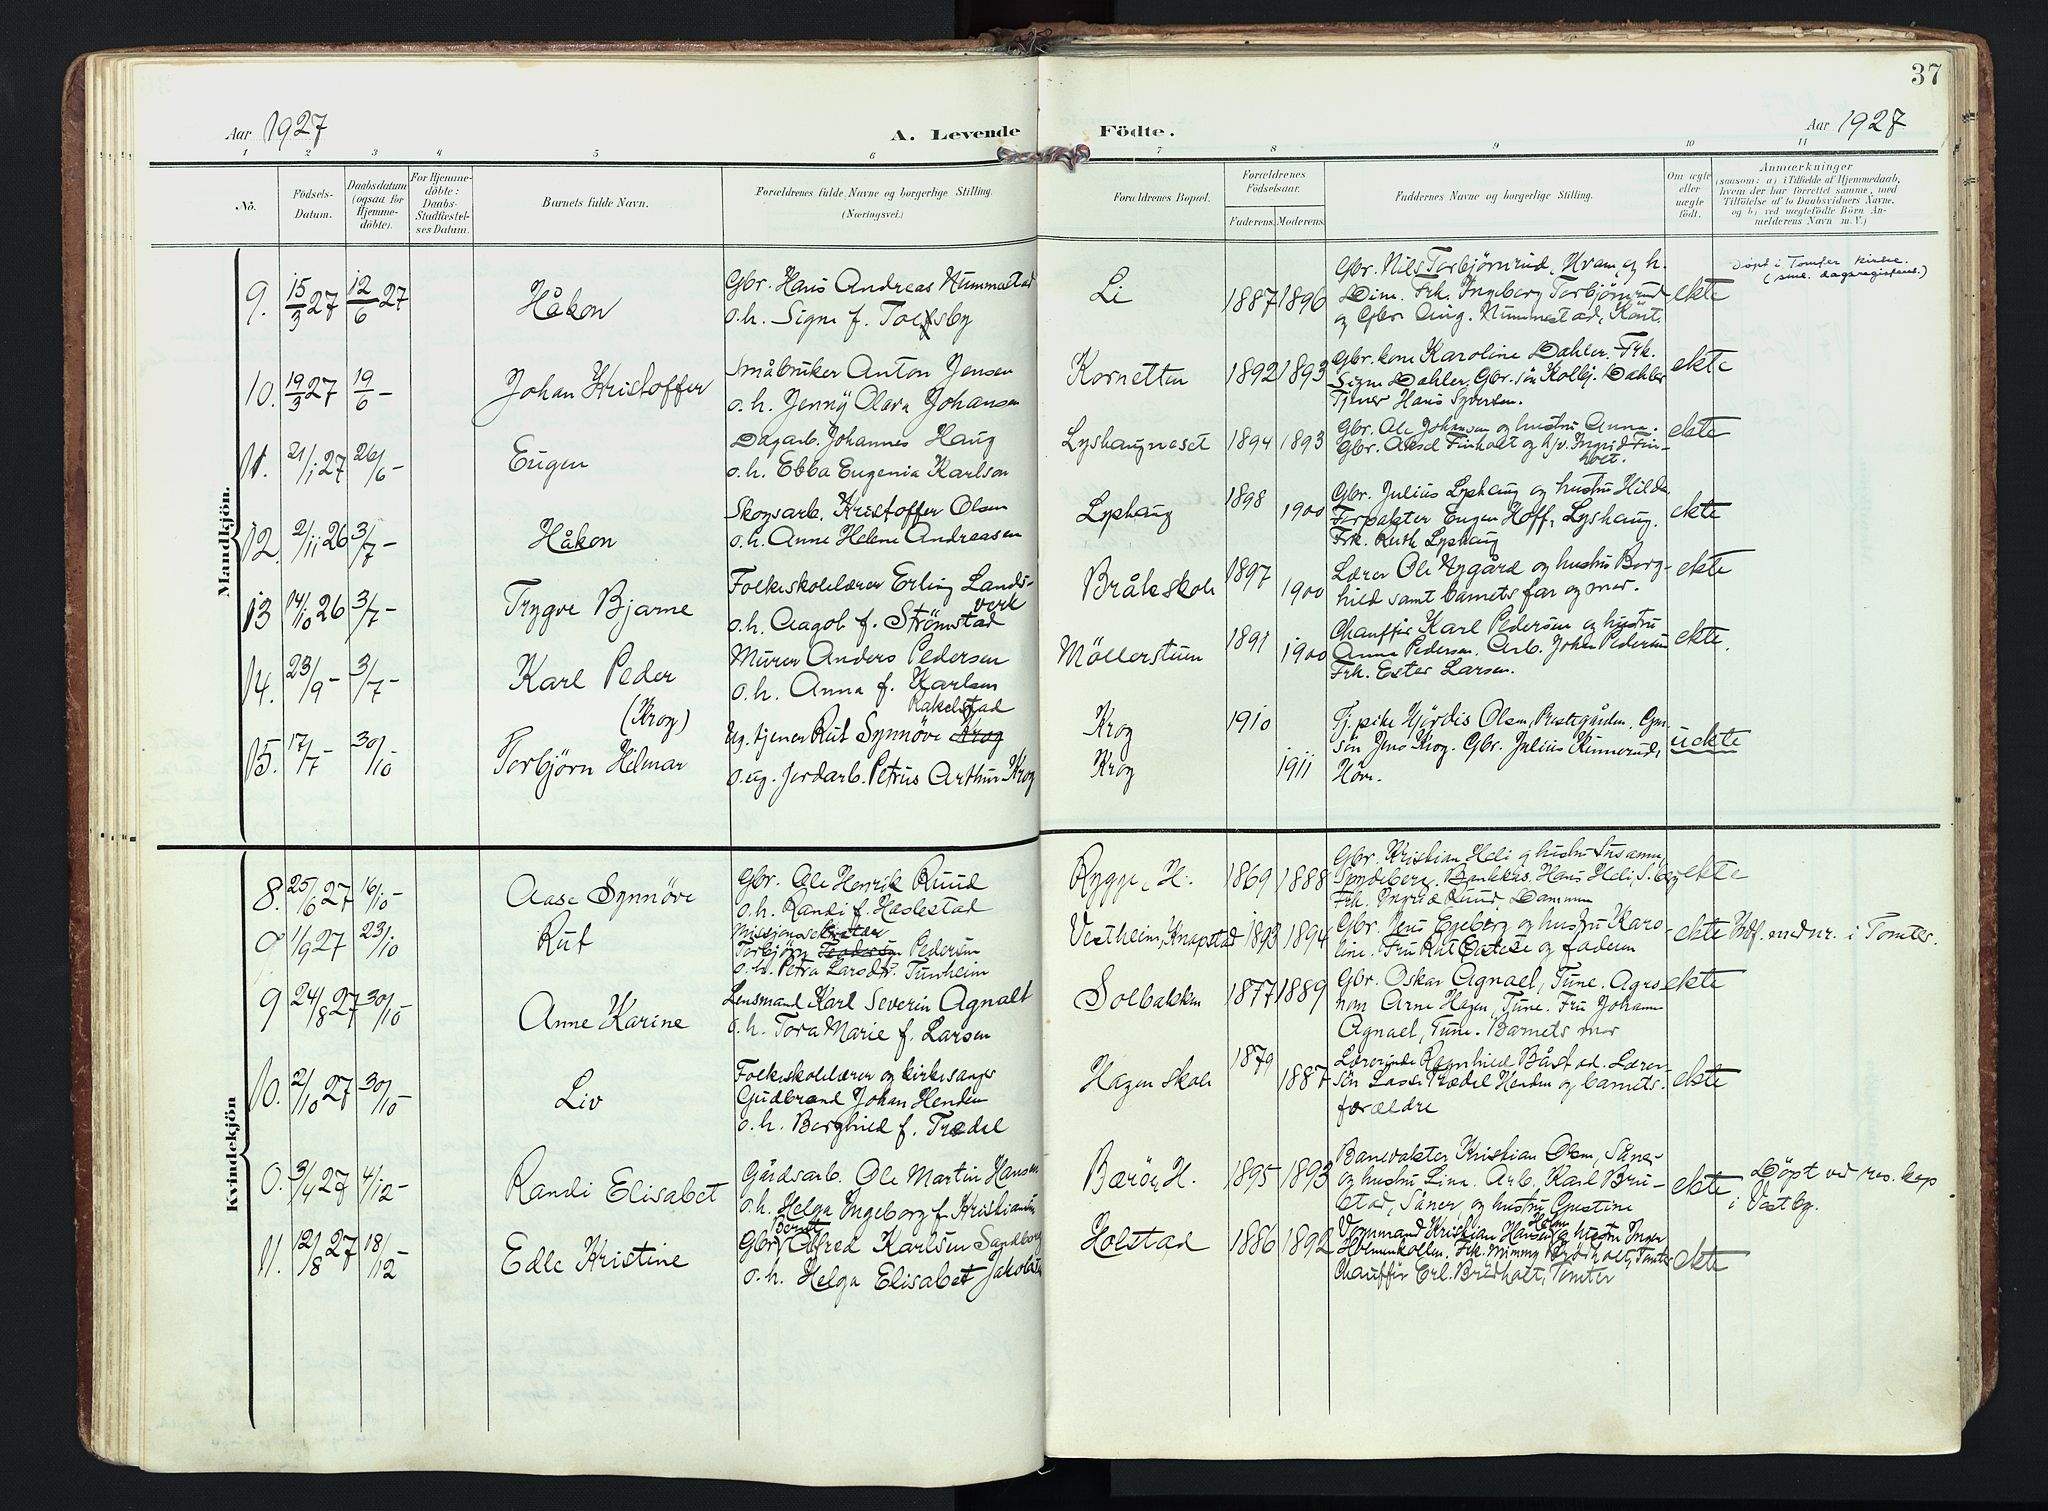 37
Aar 1927
A. Levende Födte.
Aar 1927
1 2 3 4 5 6 7 8 9 10 11
No.
Födsels-Datum.
Daabsdatum (ogsaa for Hjemme-döbte).
For Hjemme-döbte: Daabs-Stadfæstel-ses Datum.
Barnets fulde Navn.
Forældrenes fulde Navne og borgerlige Stilling. (Næringsvei.)
Forældrenes Bopæl.
Forældrenes Födselsaar.
Faderens. Moderens.
Faddernes Navne og borgerlige Stilling.
Om ægte eller uægte födt.
Anmærkninger
(saasom: a) i Tilfælde af Hjemmedaab,
hvem der har forrettet samme, med
Tilföielse af to Daabsvidners Navne,
og b) ved uægtefödte Börn An-
melderens Navn m. V.)
Mandkjön.
9. 15/3 27 12/6 27 Håkon
Gbr. Hans Andreas Nummestad
o.h. Signe f.
Li 1887 1896
Gbr. Nils Torbjörnrud, Hvam, og h.
Dina. Frk. Ingeborg Torbjörnrud
og Gbr. Aug. Nummestad,
ekte
Döpt i Tomter kirke.
(sml. dagsregisteret.)
10. 19/3 27 19/6 – Johan Kristoffer
Småbruker Anton Jensen
o.h. Jenny Olava Johansen
Kornetten 1892 1893
Gbr. kone Karoline Dahler. Frk.
Signe Dahler, Gbr. sön Kolbj. Dahler
Tjener Hans Syversen.
ekte
11. 21/1 27 26/6 – Eugen
Dagarb. Johannes Haug
o.h. Ebba Eugenia Karlson
Lyshaugneset 1894 1893
Gbr. Ole Johansen og hustru Anna.
Gbr. Aksel Finholt og h/v. Ingrid Fin-
holt.
ekte
12. 2/11 26 3/7 – Håkon
Skogsarb. Kristoffer Olsen
o.h. Anne Helene Andreasen
Lyshaug 1898 1900
Gbr. Julius Lyshaug og hustru Hilda
Forpakter Eugen Hoff, Lyshaug.
Frk. Ruth Lyshaug
ekte
13 14/10 26 3/7 – Trygve Bjarne
Folkeskolelærer Erling Lands-
verk
o.h. Aagot f. Strömstad
Bråteskole 1897 1900
Lærer Ole Nygård og hustru Borg-
hild samt barnets far og mor.
ekte
14. 23/9 – 3/7 – Karl Peder
Murer Anders Pedersen
o.h. Anna f. Karlsen
Möllerstuen 1891 1900
Chaufför Karl Pedersen og hustru
Anna Pedersen. Arb. Johan Pedersen
Frk. Ester Larsen.
ekte.
(Krog)
15. 17/7 30/10 Torbjörn Hilmar
Rakelstad
Ug. tjener Rut Synnöve Krog
o. ug. Jordarb. Petrus Arthur Krog
Krog 1910
Krog 1911
Tj. pike Hjördis Olsen, Prestegården. Grn-
sön Jens Krog. Gbr. Julius Kinnerud,
uekte
Kvindekjön
8. 25/6 27 16/10 – Aase Synnöve
Gbr. Ole Henrik Ruud
o.h. Randi f. Haslestad
Rygge, H. 1869 1888
Gbr. Kristian Heli og hustru Susanna,
Hans Heli,
Frk. Ingrid Ruud, Dammen
ekte
9 1/9 27 23/10 Rut
Missjonssekretær
Torbjörn Pedersen
o.h. Petra Larsdtr. Tunheim
Vestheim, Knapstad 1893 1894
Gbr. Jens Egeberg og hustru Karo-
line. Fru og faderen
ekte
Intf. med nr. i Tomter.
9 24/8 27 30/10 Anne Karine
Lensmand Karl Severin Agnalt
o.h. Tora Marie f. Larsen
Solbakken 1877 1889
Gbr. Oskar Agnalt, Tune. Agro-
nom Arne Hagen, Tune. Fru Johanne
Agnalt, Tune. Barnets mor
ekte
10. 2/10 27 30/10 – Liv
Folkeskolelærer og kirkesanger
Gudbrand Johan Henden
o.h. Borghild f. Trædal
Hagen skole 1879 1887
Lærerinde Ragnhild Båstad. Lærer-
sön Lasse Trædal Henden og barnets
forældre
ekte
0. 3/4 27 4/12 – Randi Elisabet
Gårdsarb. Ole Martin Hansen
o.h. Helga Ingeborg f. Kristiansen
Baröy, H. 1895 1893
Banevokter Kristian Olsen, Såner
og hustru Lina. Arb. Karl Bru-
stad, Såner, og hustru Gustine
ekte
Döpt ved res. kap
i Vestby.
11. 12/8 27 18/12 – Edle Kristine
Bernt
Gbr. Alfred Karlsen Sandberg
o.h. Helga Elisabet Jakobsen
Holstad 1886 1892
Holm
Vognmand Kristian Hansen og hustru Inger
Holmenkollen. Frk. Mimmy Brödholt, Tomter
Chaufför Erl. Brödholt, Tomter
ekte